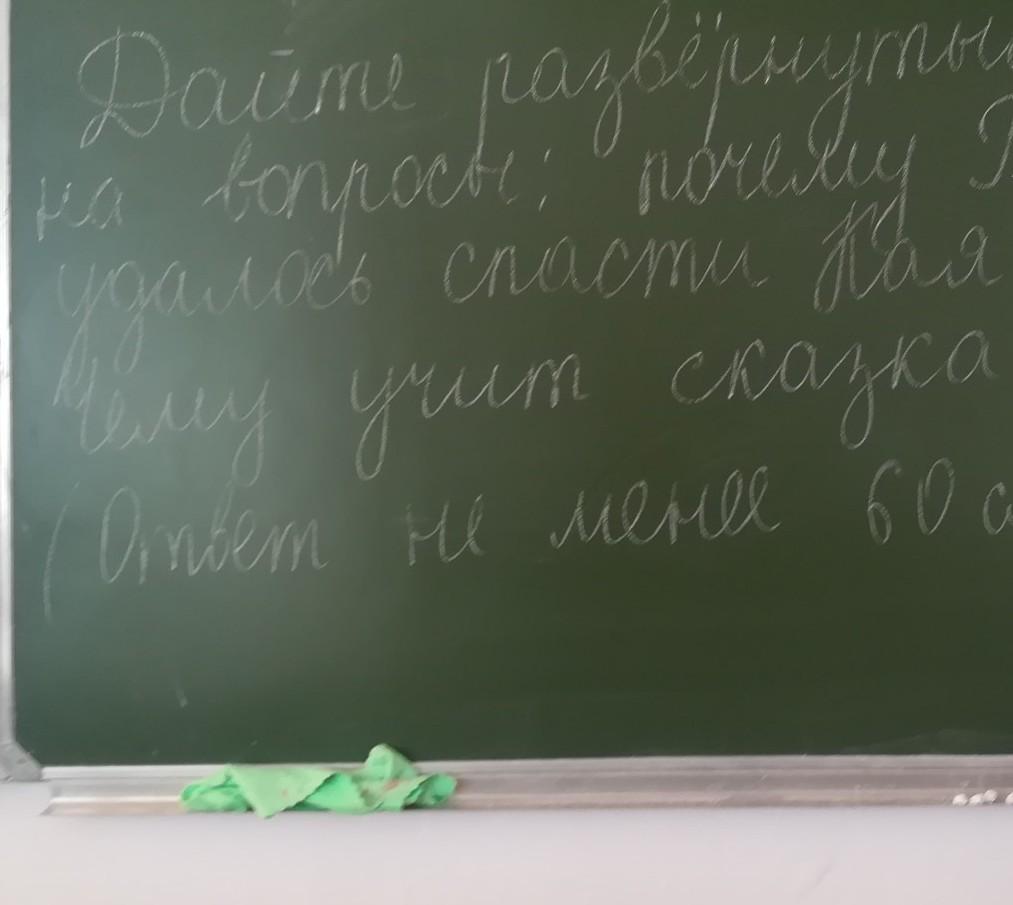 Дайте развёрнуты
на вопросы: почему Г
удалось спасти Кая
Чему учит сказка
(Ответ не менее 60 с